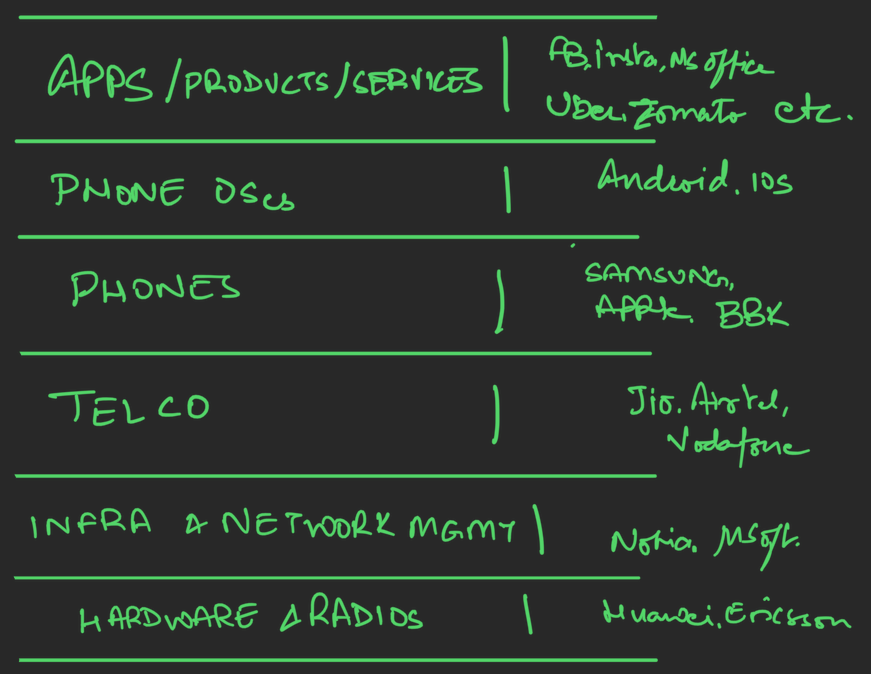 APPS/PRODUCTS/SERVICES | FB, insta, MS office
Uber, Zomato etc.
PHONE OSes | Android, iOS
PHONES | SAMSUNG,
Apple, BBK
TELCO | Jio, Airtel,
Vodafone
INFRA & NETWORK MGMT | Nokia, MSoft.
HARDWARE & RADIOS | Huawei, Ericsson